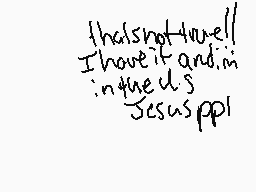 thatsnottrue!!
I have it and im
in the U.S
Jesus ppl